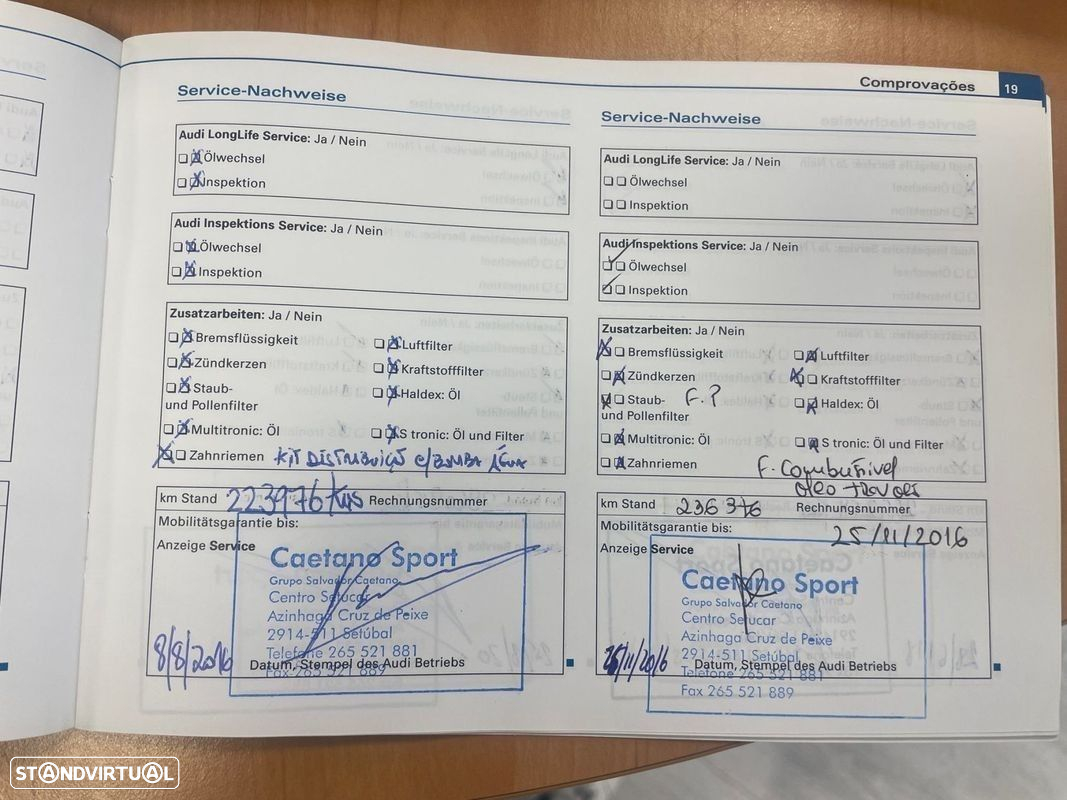 Comprovações 19
Service-Nachweise
Audi LongLife Service: Ja / Nein
Ölwechsel
Inspektion
Audi Inspektions Service: Ja / Nein
Ölwechsel
Inspektion
Zusatzarbeiten: Ja / Nein
Bremsflüssigkeit
Luftfilter
Zündkerzen
Kraftstofffilter
Staub-
und Pollenfilter
Haldex: Öl
Multitronic: Öl
S tronic: Öl und Filter
Zahnriemen KIT DISTRIBUIÇÃO C/BOMBA ÁGUA
km Stand 223976 Kms Rechnungsnummer
Mobilitätsgarantie bis:
Anzeige Service
Caetano Sport
Grupo Salvador Caetano
Centro Setucar
Azinhaga Cruz de Peixe
2914-511 Setúbal
Telefone 265 521 881
Fax 265 521 889
8/8/2016
Datum, Stempel des Audi Betriebs
Service-Nachweise
Audi LongLife Service: Ja / Nein
Ölwechsel
Inspektion
Audi Inspektions Service: Ja / Nein
Ölwechsel
Inspektion
Zusatzarbeiten: Ja / Nein
Bremsflüssigkeit
Luftfilter
Zündkerzen
Kraftstofffilter
Staub- F.P
und Pollenfilter
Haldex: Öl
Multitronic: Öl
S tronic: Öl und Filter
Zahnriemen
F. Combustivel
oleo travoes
km Stand 236376 Rechnungsnummer
Mobilitätsgarantie bis:
25/11/2016
Anzeige Service
Caetano Sport
Grupo Salvador Caetano
Centro Setucar
Azinhaga Cruz de Peixe
2914-511 Setúbal
Telefone 265 521 881
Fax 265 521 889
25/11/2016
Datum, Stempel des Audi Betriebs
STANDVIRTUAL